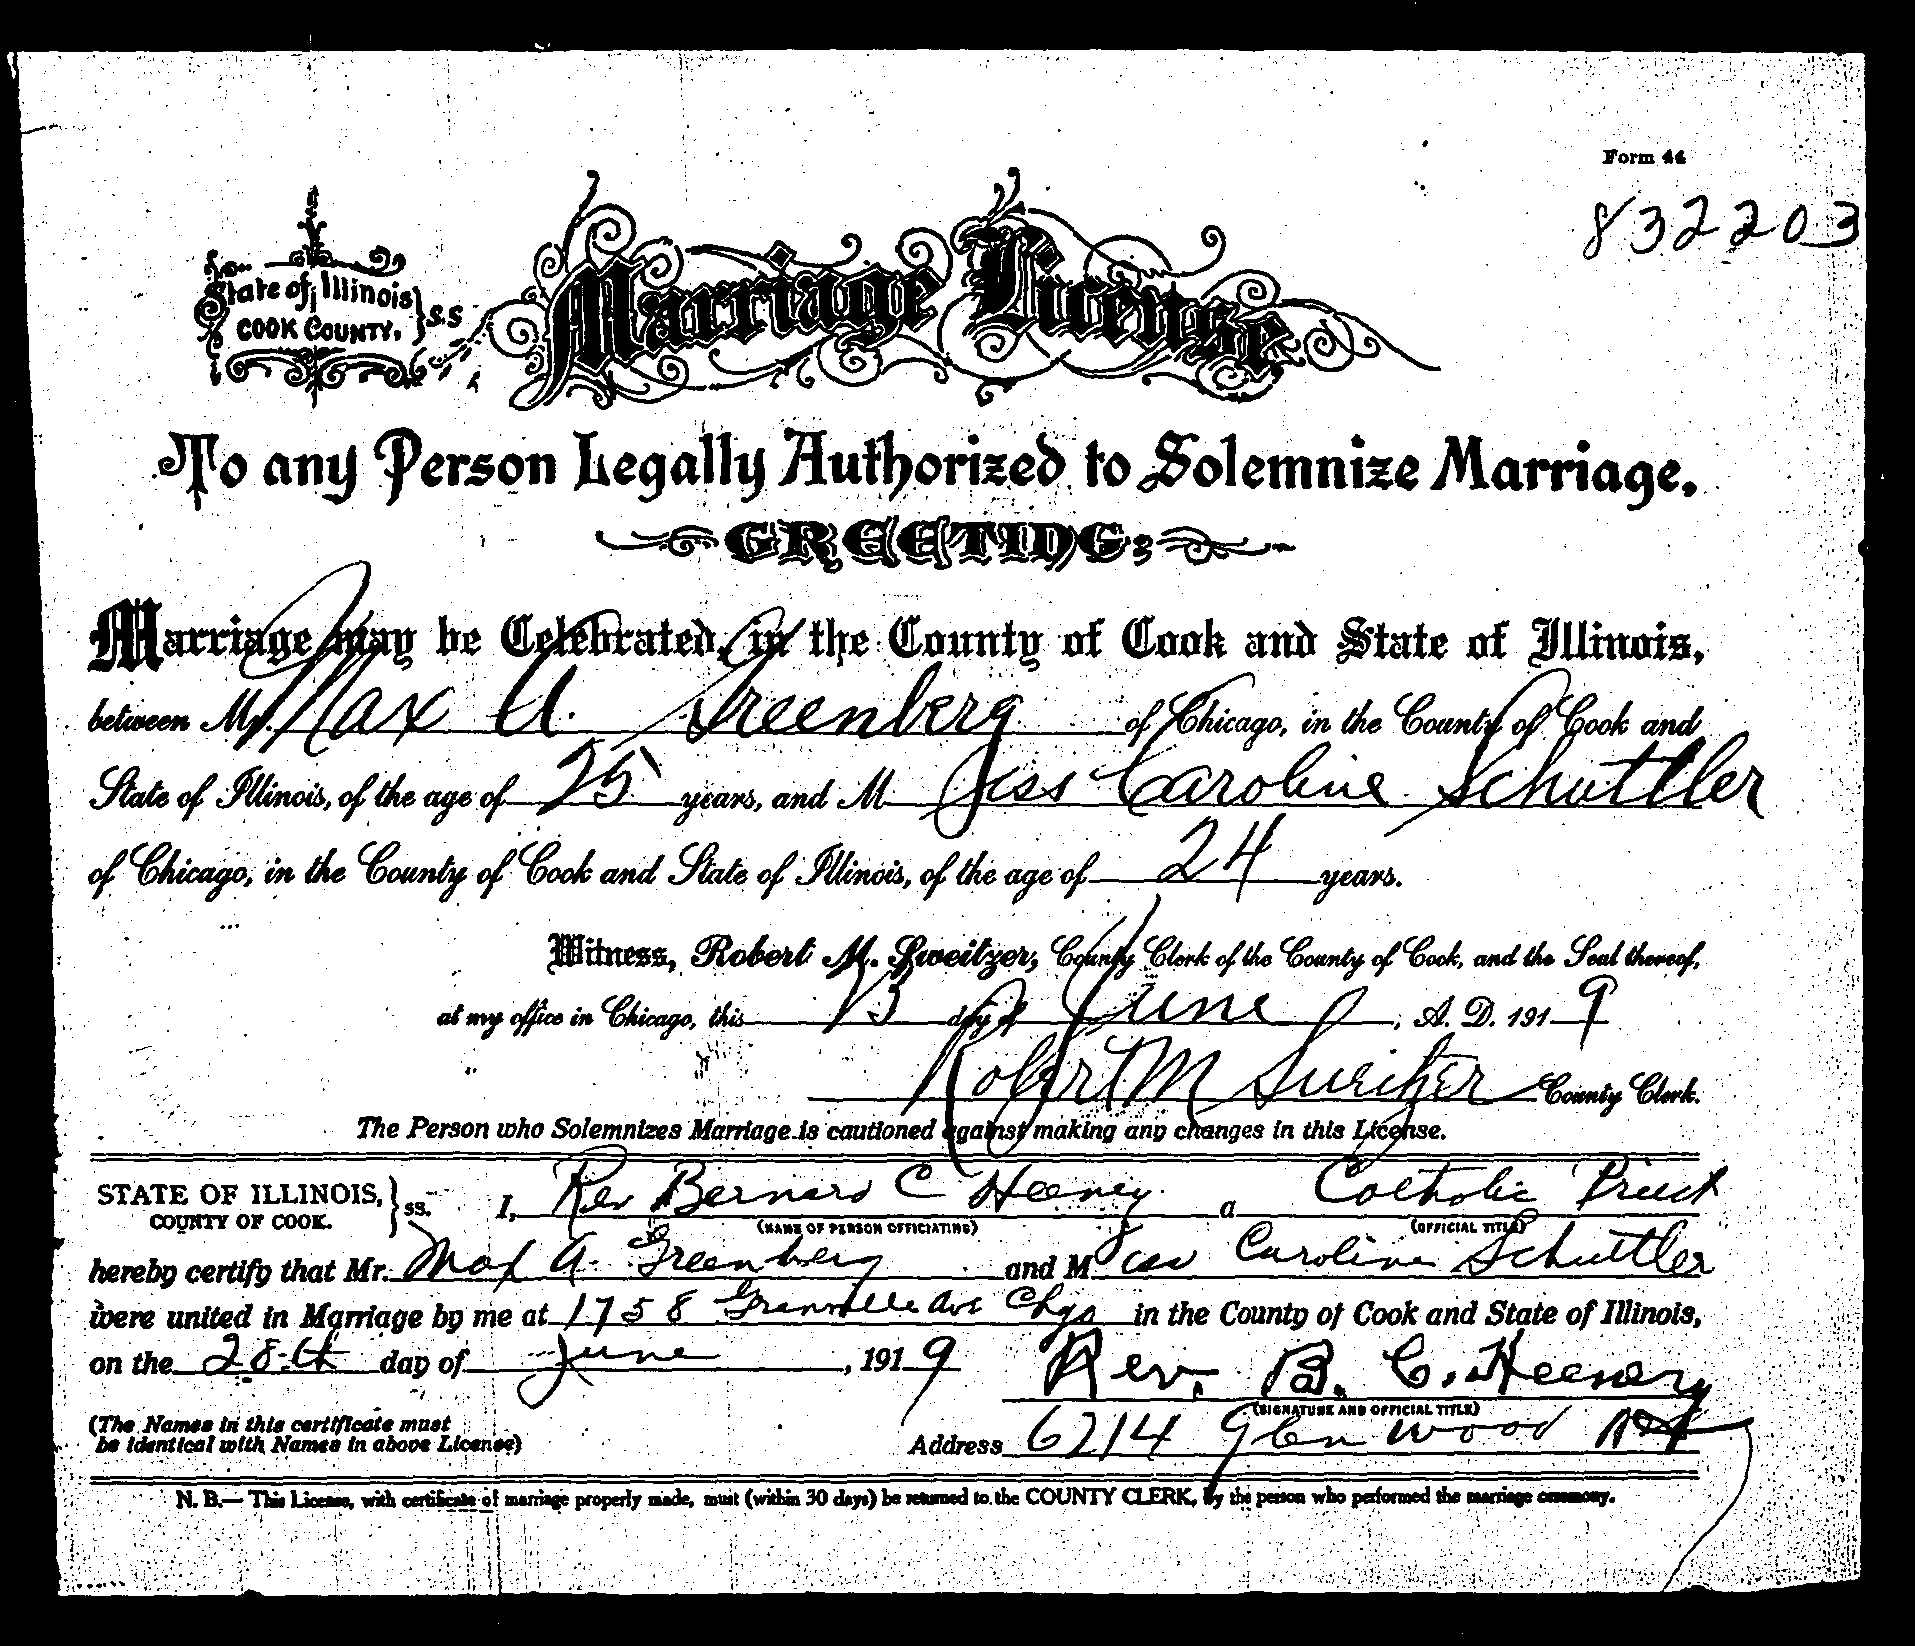 Form 44
832203
State of Illinois
COOK COUNTY, } S.S
Marriage License
To any Person Legally Authorized to Solemnize Marriage,
GREETING:
Marriage may be Celebrated, in the County of Cook and State of Illinois,
between Mr. Max A. Greenberg of Chicago, in the County of Cook and
State of Illinois, of the age of 25 years, and M iss Caroline Schuttler
of Chicago, in the County of Cook and State of Illinois, of the age of 24 years.
Witness, Robert M. Sweitzer, County Clerk of the County of Cook, and the Seal thereof,
at my office in Chicago, this 13 day of June, A. D. 1919
Robert M Sweitzer County Clerk.
The Person who Solemnizes Marriage is cautioned against making any changes in this License.
STATE OF ILLINOIS, } ss. I, Rev Bernard C Heeney a Catholic Priest
COUNTY OF COOK. (NAME OF PERSON OFFICIATING) (OFFICIAL TITLE)
hereby certify that Mr. Max A. Greenberg and M iss Caroline Schuttler
were united in Marriage by me at 1758 Granville Ave Chgo in the County of Cook and State of Illinois,
on the 28th day of June, 1919 Rev. B. C. Heeney
(SIGNATURE AND OFFICIAL TITLE)
(The Names in this certificate must
be identical with Names in above License) Address 6214 Glenwood
N. B.— This License, with certificate of marriage properly made, must (within 30 days) be returned to the COUNTY CLERK, by the person who performed the marriage ceremony.